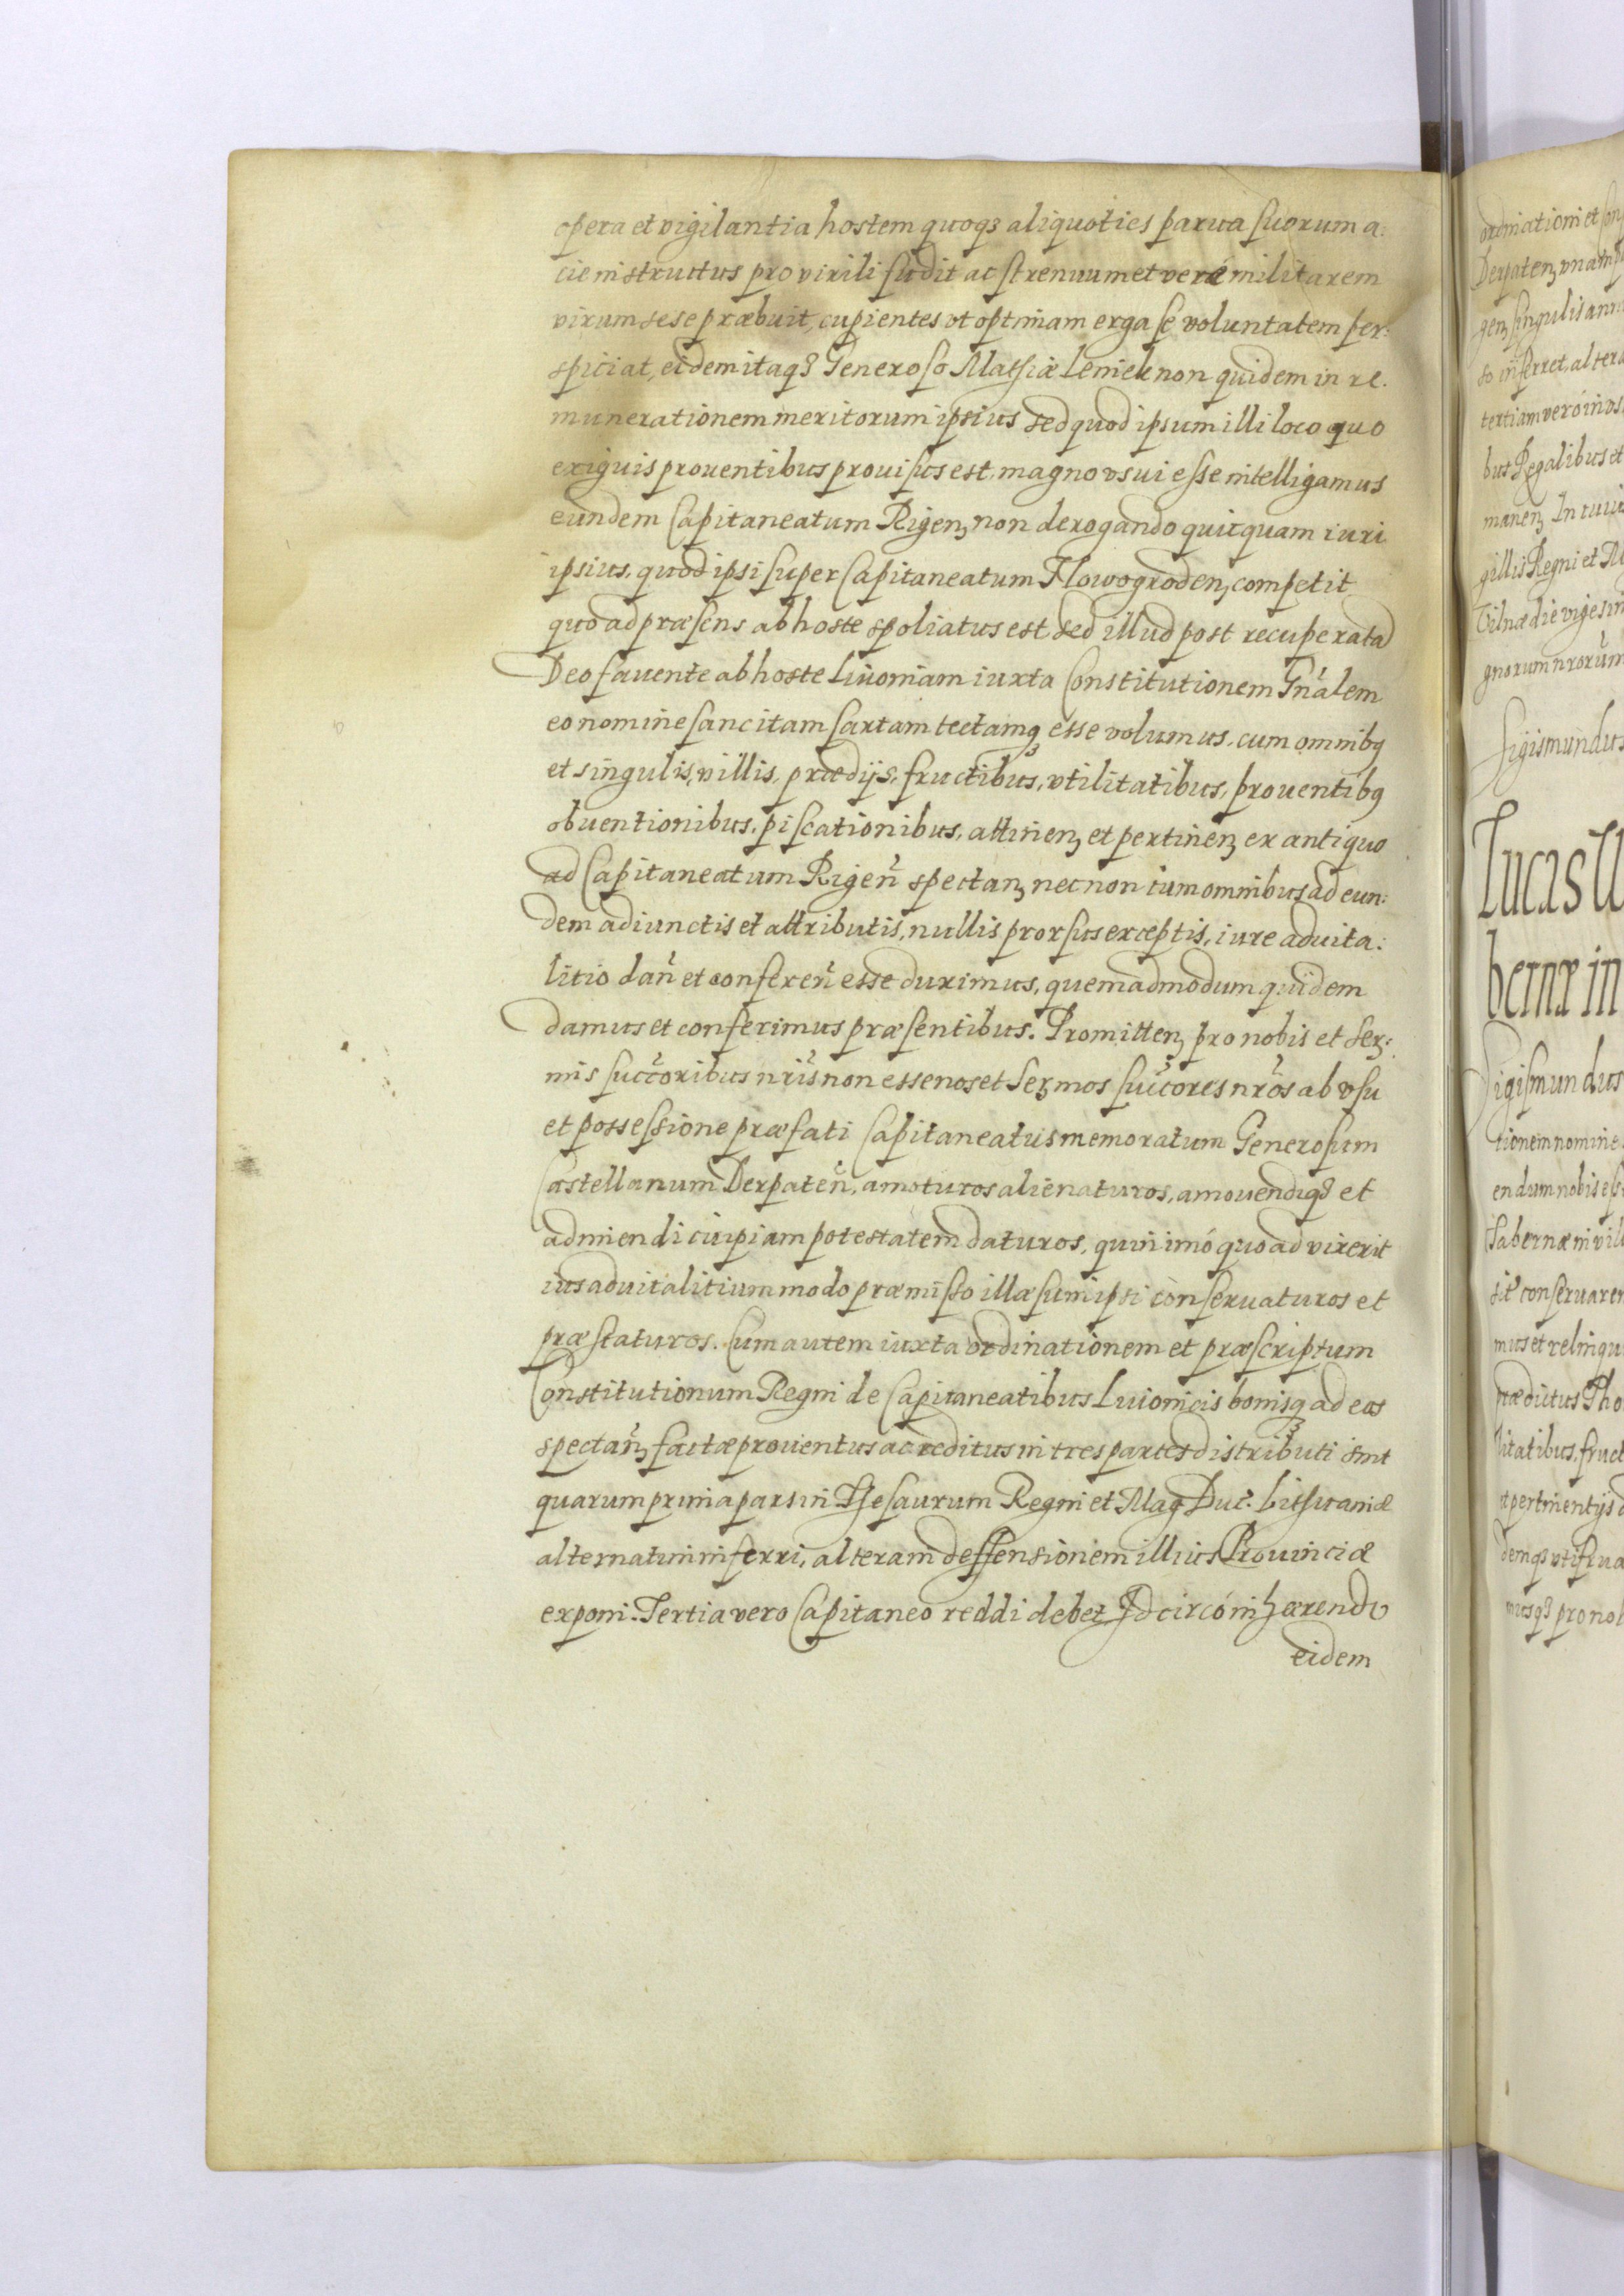 opera et vigilantia hostem quoqȝ aliquoties parua suorum a:
cie instructus pro virili fudit ac strenuum et veré militarem
virum sese præbuit, cupientes vt optimam erga se voluntatem per:
spiciat, eidem itaqȝ Generoso Mathiæ Leniek non quidem in re:
munerationem meritorum ipsius sed quod ipsum illi loco quo
exiguis prouentibus prouisus est, magno vsui esse intelligamus
eundem Capitaneatum Rigenȝ non derogando quicquam iuri
ipsius, quod ipsi super Capitaneatum Nowogrodenȝ competit
quo ad præsens ab hoste spoliatus est sed illud post recuperatã
Deo fauente ab hoste Liuoniam iuxta Constitutionem Gńalem
eo nomine sancitam sartam tectamqȝ esse volumus, cum omnibꝫ
et singulis, villis, prædijs, fructibus, vtilitatibus, prouentibꝫ
obuentionibus, piscationibus, attinenȝ et pertinenȝ ex antiquo
ad Capitaneatum Rigeñ spectanȝ necnon cum omnibus ad eun:
dem adiunctis et attributis, nullis prorsus exceptis, iure aduita:
litio dañ et confereñ esse duximus, quemadmodum quidem
damus et conferimus præsentibus. Promittenȝ pro nobis et Serȝ:
mis succoribus nris non esse nos et Serȝmos succores nros ab vsu
et possessione præfati Capitaneatus memoratum Generosum
Castellanum Derpateñ, amoturos alienaturos, amouendiqȝ et
adimendi cuipiam potestatem daturos, quinimó quo ad vixerit
ius aduitalitium modo præmisso illæsum ipsi conseruaturos et
præstaturos. Cum autem iuxta ordinationem et præscriptum
Constitutionum Regni de Capitaneatibus Liuonicis bonisqȝ ad eos
spectanȝ factæ prouentus ac reditus in tres partes distributi sint
quarum prima pars in Thesaurum Regni et Mag Duc. Lithuaniæ
alternatim inferri, altera in deffensionem illius Prouinciæ
exponi. Tertia vero Capitaneo reddi debet Idcircó inhærendo
eidem
ordinationi et
Derpatenȝ vnam
genȝ singulis
so inferret, altera
tertiam veró in
bus Regalibus et
manenȝ In cuius
gillis Regni et
Vilnæ die
gnorum nrorum
Sigismundus
Lucas
bernæ in
Sigismundus
tionem nomine
endum nobis
Tabernæ in
sit
mus et
prædictus
litatibus, fruct
et pertinentijs
demqȝ
musqȝ pro